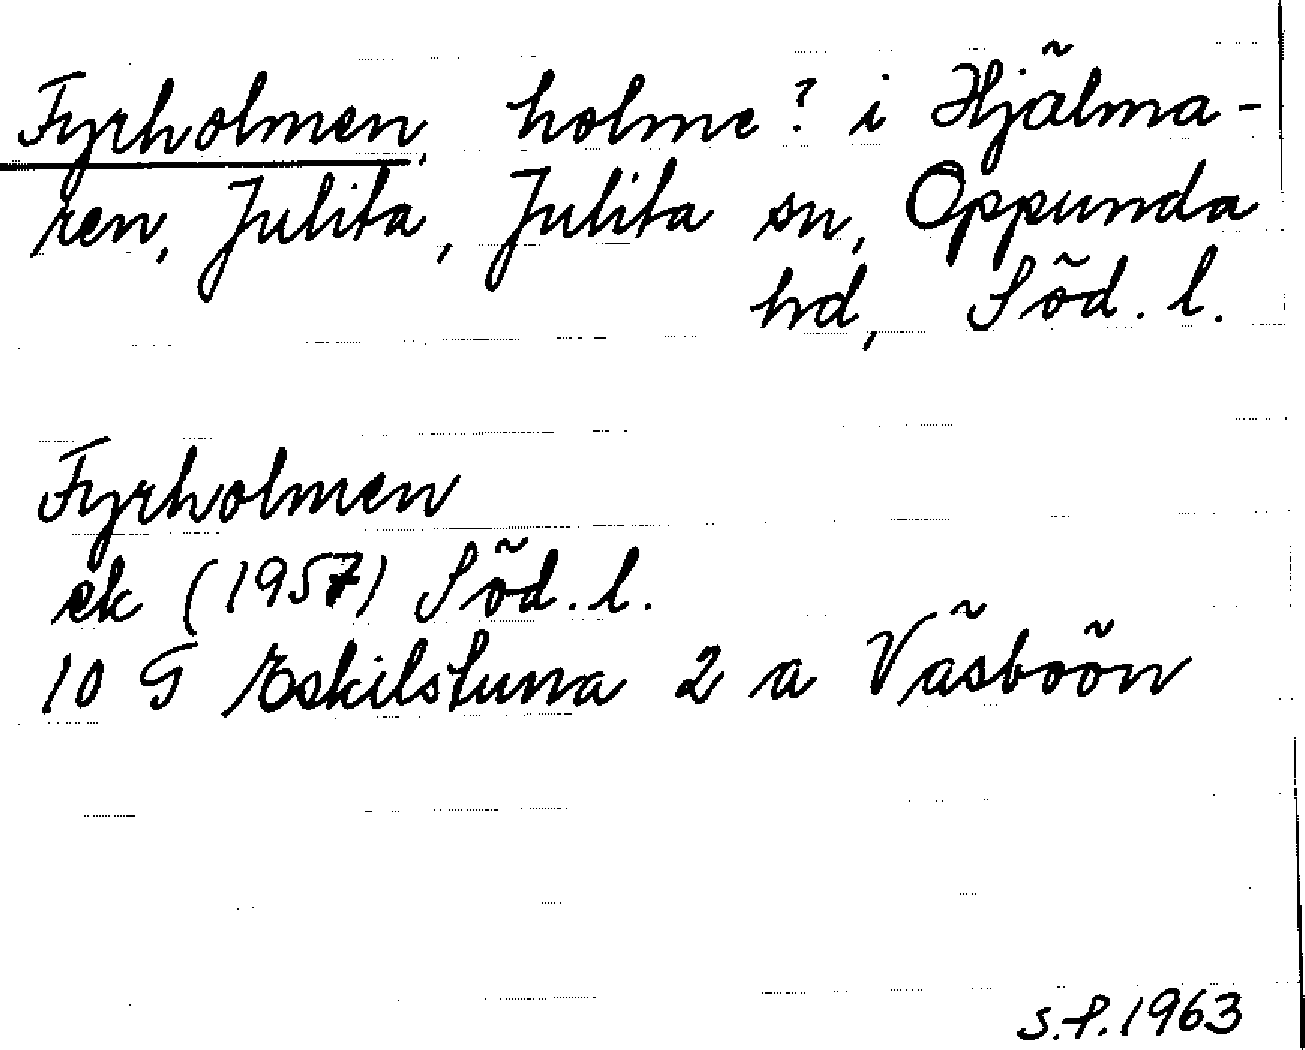 Fyrholmen, holme? i Hjälma-
ren, Julita, Julita sn, Oppunda
hd, Söd. l.
Fyrholmen
ek (1957) Söd. l.
10 G Eskilstuna 2 a Väsboön
S.P. 1963